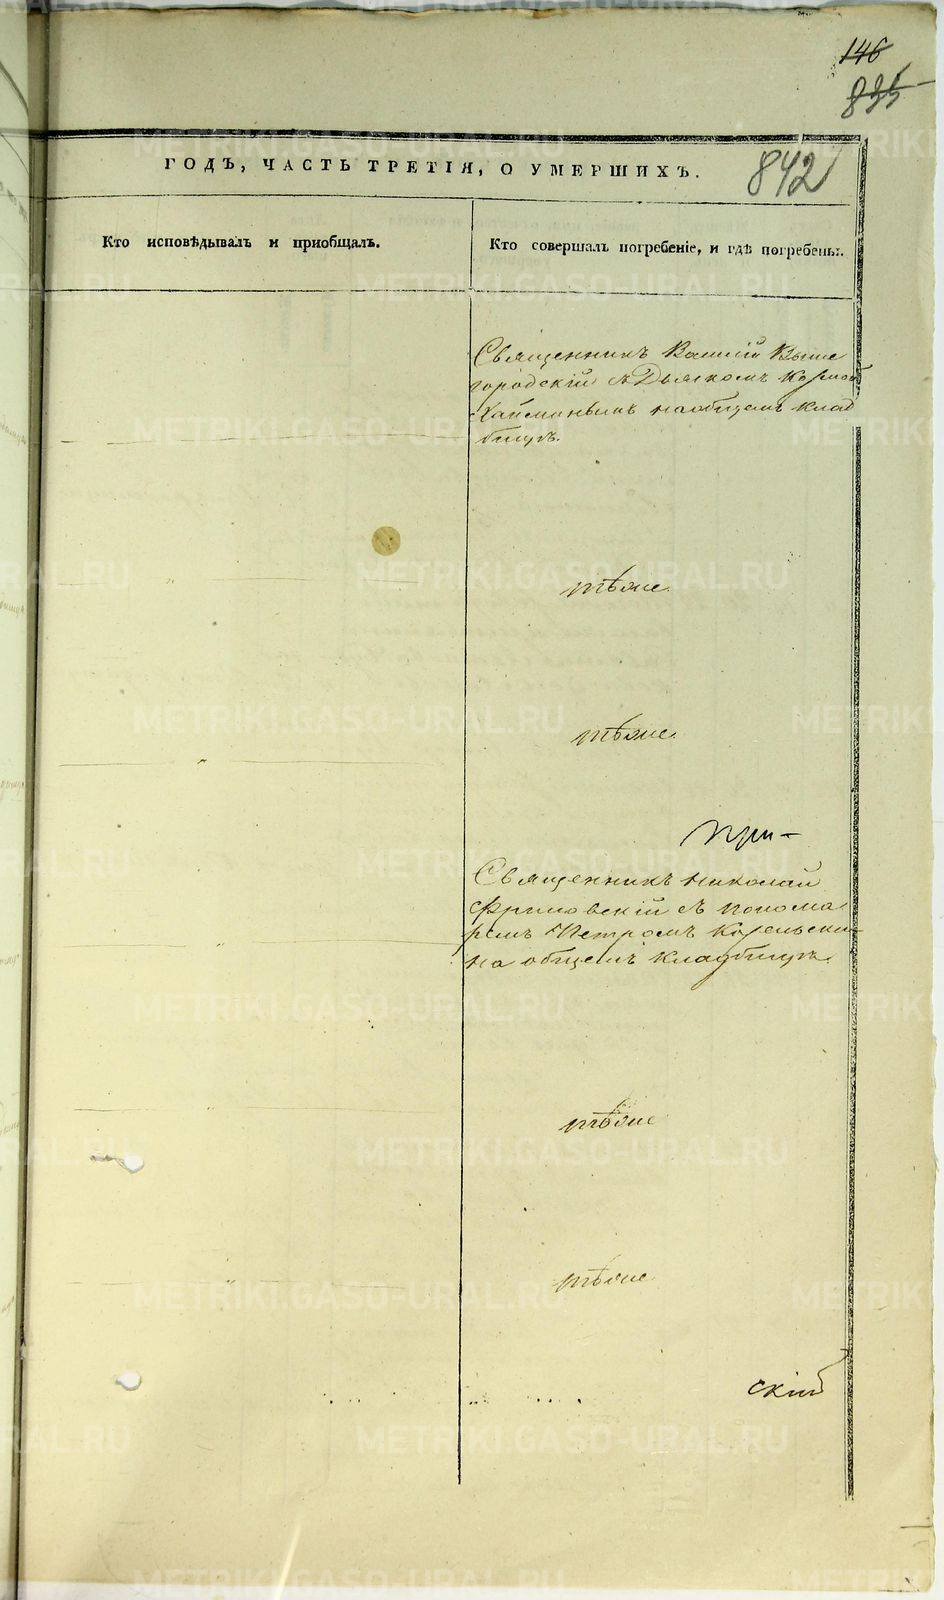 146
835
842
ГОДЪ, ЧАСТЬ ТРЕТІЯ, О УМЕРШИХЪ.
Кто исповѣдывалъ и пріобщалъ.
Кто совершалъ погребеніе, и гдѣ погребены.
Священникъ Выше
городскій съ Дьячкомъ
на общемъ клад
бищѣ.
тѣже
тѣже
при-
Священникъ Николай
съ понома
ремъ Петромъ
на общемъ кладбищѣ.
тѣже
тѣже
скій
METRIKI.GASO-URAL.RU